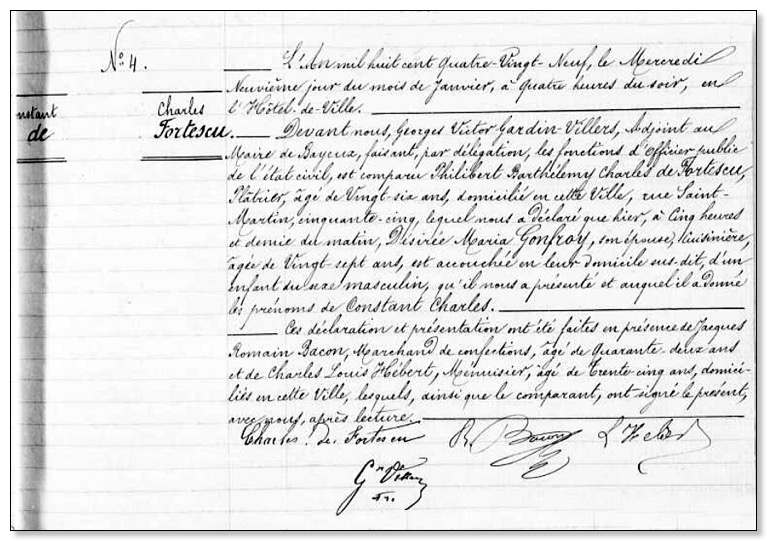 No. 4.
nstant Charles
de Fortescu.
L'An mil huit cent Quatre-Vingt-Neuf, le Mercredi
Neuvième jour du mois de Janvier, à Quatre heures du soir, en
l'Hôtel-de-Ville.
Devant nous, Georges Victor Gardin-Villers, Adjoint au
Maire de Bayeux, faisant, par délégation, les fonctions d'Officier public
de l'état civil, est comparu Philibert Barthélemy Charles de Fortescu,
Plâtrier, âgé de Vingt-six ans, domicilié en cette Ville, rue Saint-
Martin, cinquante-cinq, lequel nous a déclaré que hier, à Cinq heures
et demie du matin, Désirée Maria Gonfroy, son épouse, Cuisinière,
âgée de Vingt-sept ans, est accouchée en leur domicile sus-dit, d'un
enfant du sexe masculin, qu'il nous a présenté et auquel il a donné
les prénoms de Constant Charles.
Ces déclaration et présentation ont été faites en présence de Jacques
Romain Bacon, Marchand de confections, âgé de Quarante-deux ans
et de Charles Louis Hébert, Ménuisier, âgé de Trente-cinq ans, domici-
liés en cette Ville, lesquels, ainsi que le comparant, ont signé le présent,
avec nous, après lecture.
Charles de Fortescu R. Bacon L Hebert